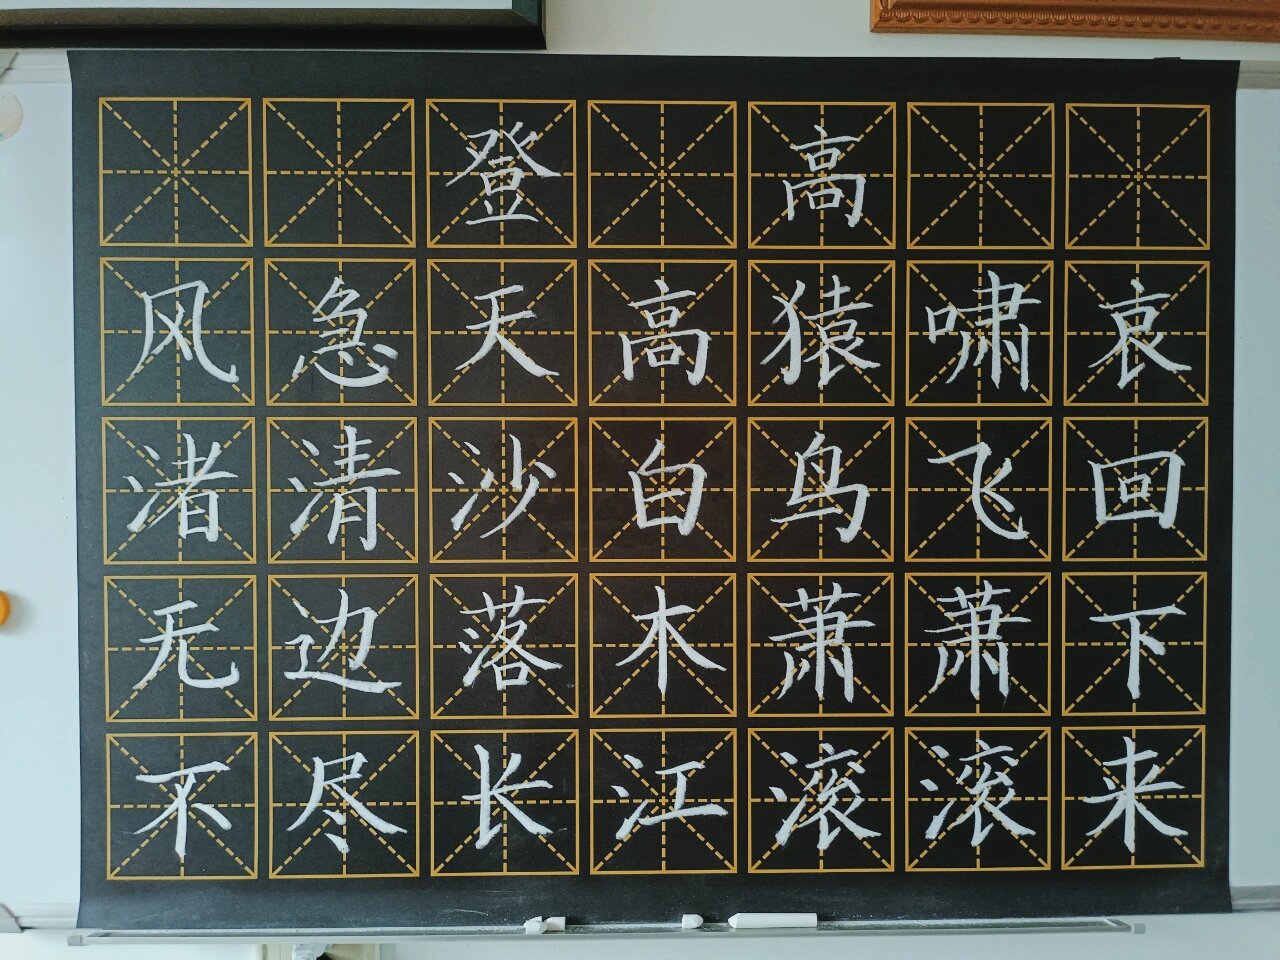 登高
风急天高猿啸哀
渚清沙白鸟飞回
无边落木萧萧下
不尽长江滚滚来